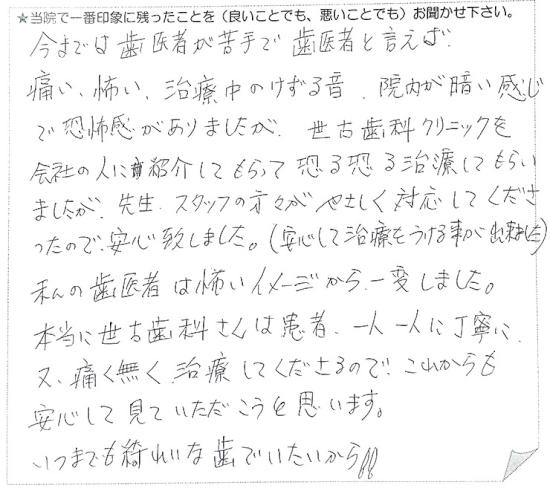 ★当院で一番印象に残ったことを（良いことでも、悪いことでも）お聞かせ下さい。
今までは歯医者が苦手で歯医者と言えば、
痛い、怖い、治療中のけずる音、院内が暗い感じ
で恐怖感がありましたが、世古歯科クリニックを
会社の人に紹介してもらって恐る恐る治療してもらい
ましたが、先生、スタッフの方々がやさしく対応してくださ
ったので、安心致しました。（安心して治療をうける事が出来ました）
私の歯医者は怖いイメージから、一変しました。
本当に世古歯科さんは患者、一人一人に丁寧に、
又、痛く無く治療してくださるので、これからも
安心して見ていただこうと思います。
いつまでも綺れいな歯でいたいから!!